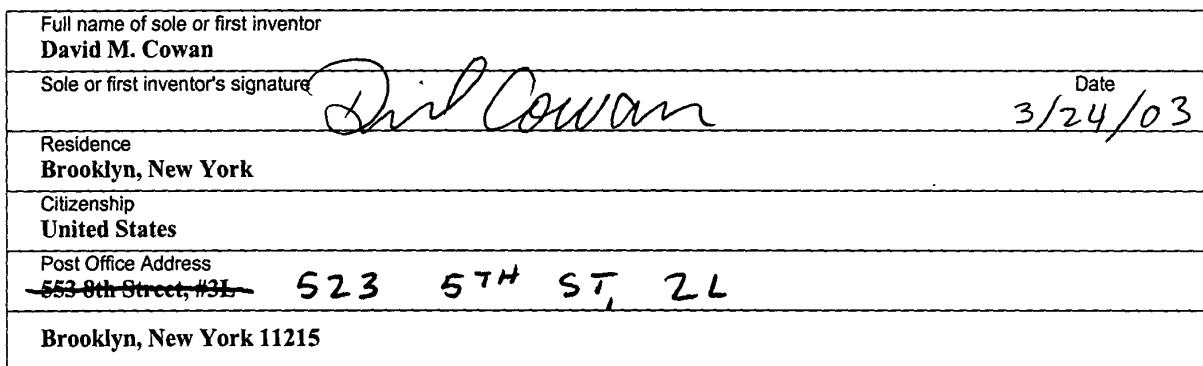 Full name of sole or first inventor
David M. Cowan
Sole or first inventor's signature
David Cowan
Date
3/24/03
Residence
Brooklyn, New York
Citizenship
United States
Post Office Address
553 8th Street, #3L 523 5TH ST, 2L
Brooklyn, New York 11215